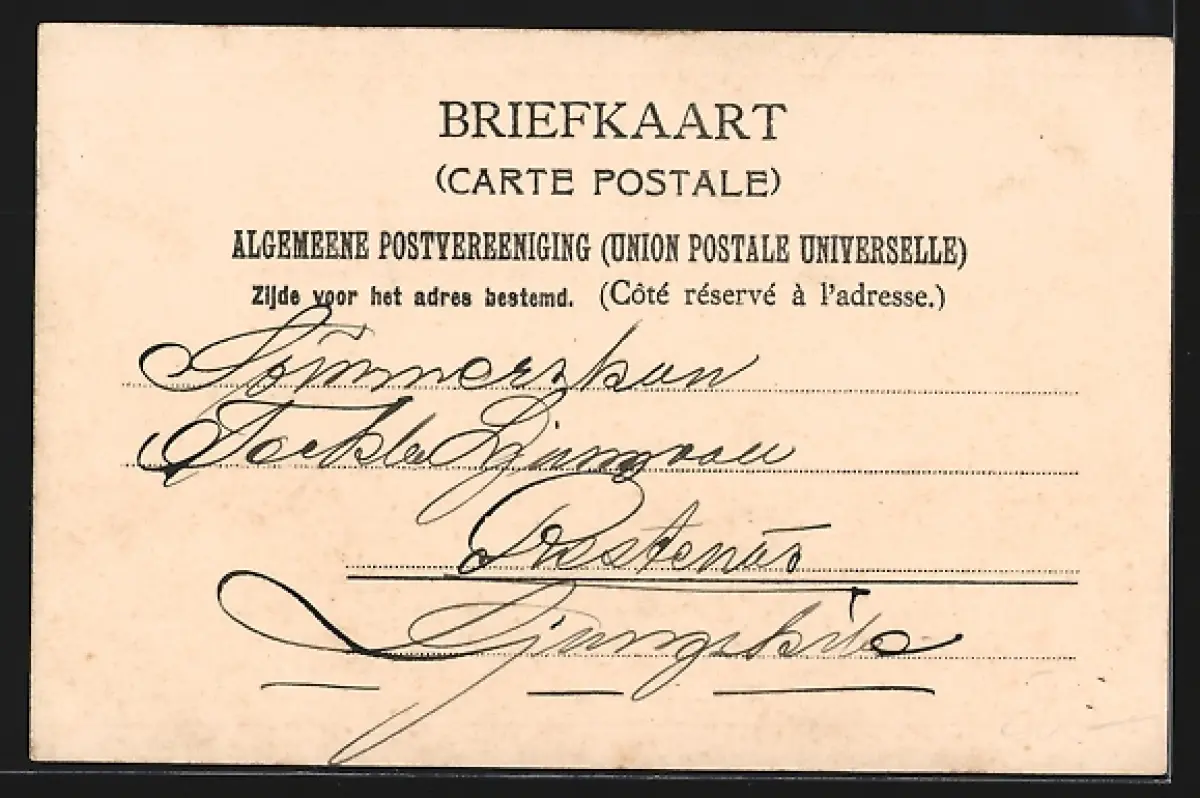 BRIEFKAART
(CARTE POSTALE)
ALGEMEENE POSTVEREENIGING (UNION POSTALE UNIVERSELLE)
Zijde voor het adres bestemd. (Côté réservé à l'adresse.)
Tockla Ljungvall
Restenäs
Ljungskile